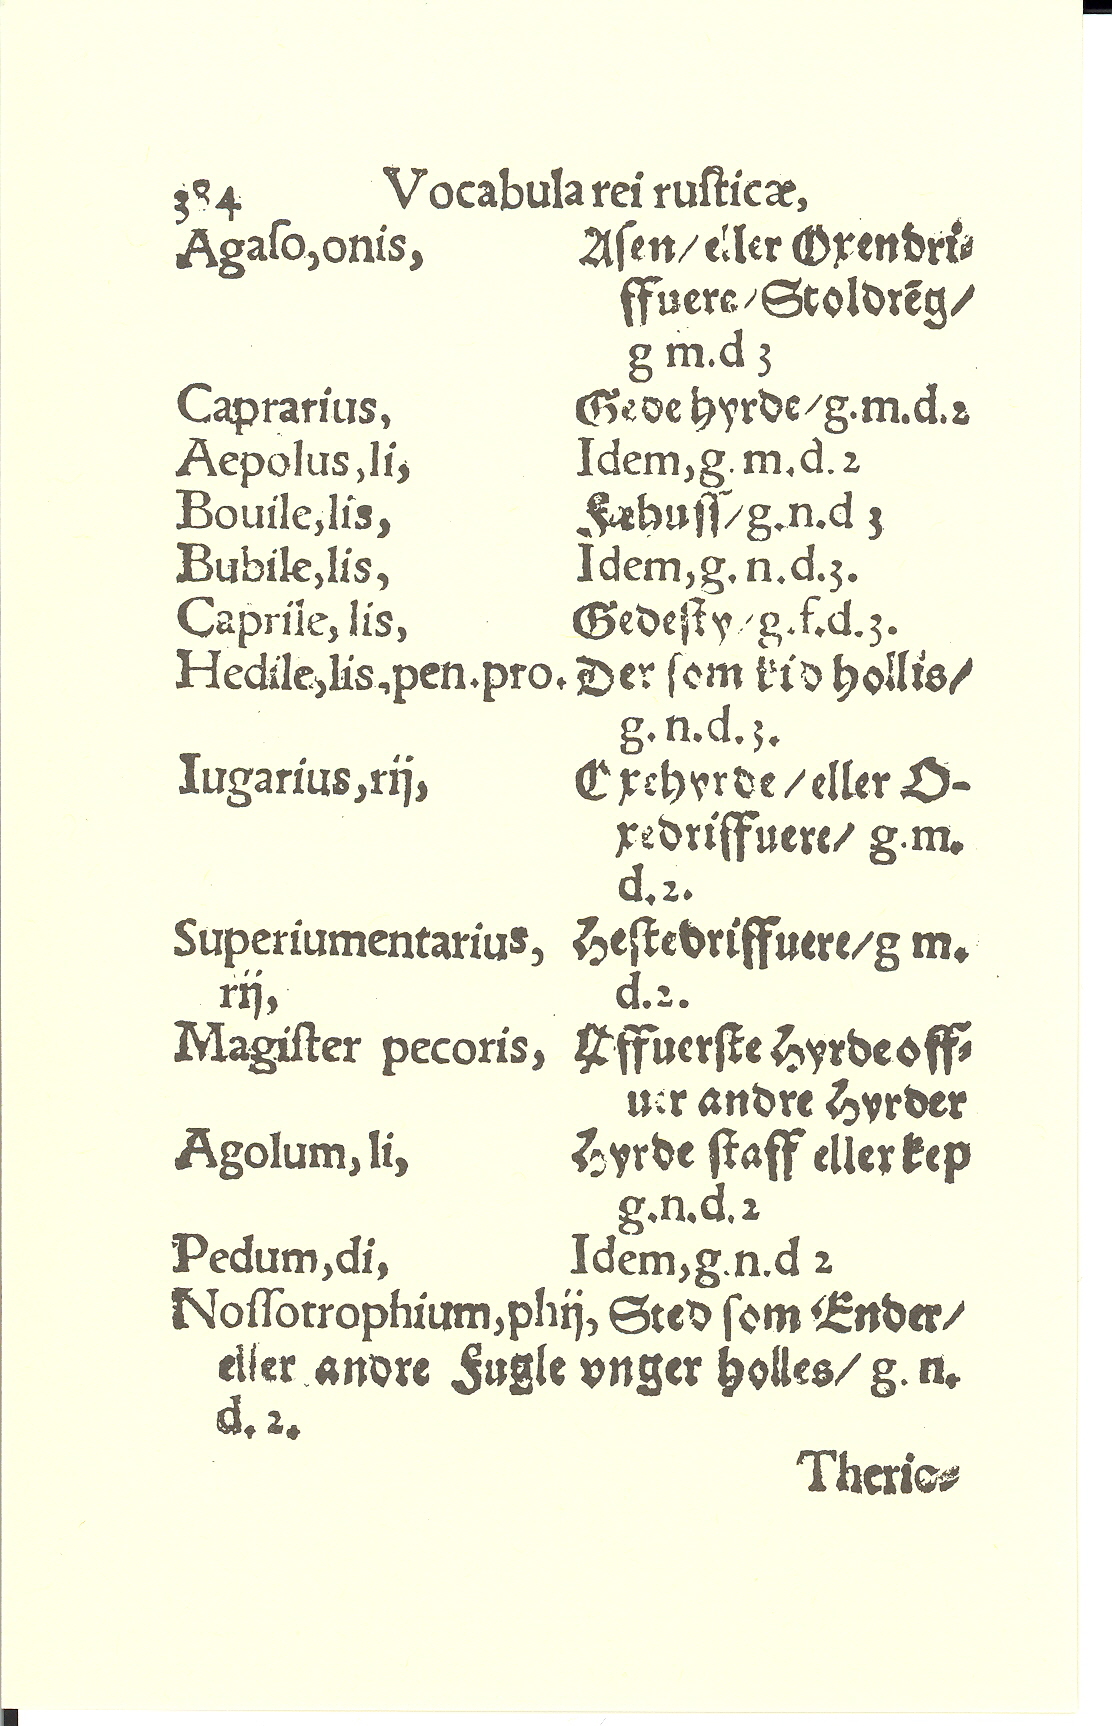 384 Vocabula rei ruſticæ,
Agaſo,onis, Aſen/ eller Oxendri⸗
ffuere/Stoldrēg/
g m.d 3
Caprarius, Gede hyrde/g.m.d.2
Aepolus,li, Idem,g.m.d.2
Bouile,lis, Fæhuſſ/g.n.d 3
Bubile,lis, Idem,g.n.d.3.
Caprile,lis, Gedeſty/g.f.d.3.
Hedile,lis,pen.pro. Der ſom kid hollis/
g.n.d.3.
Iugarius,rij, Exehyrde/eller O-
xedriffuere/ g.m.
d.2.
Superiumentarius, Heſtedriffuere/g m.
rij, d.2.
Magiſter pecoris, Øffuerſte Hyrde off⸗
uer andre Hyrder
Agolum,li, Hyrde ſtaff eller kep
g.n.d.2
Pedum,di, Idem,g.n.d 2
Noſſotrophium,phij, Sted ſom Ender/
eller andre Fugle vnger holles/ g. n.
d. 2.
Therio⸗